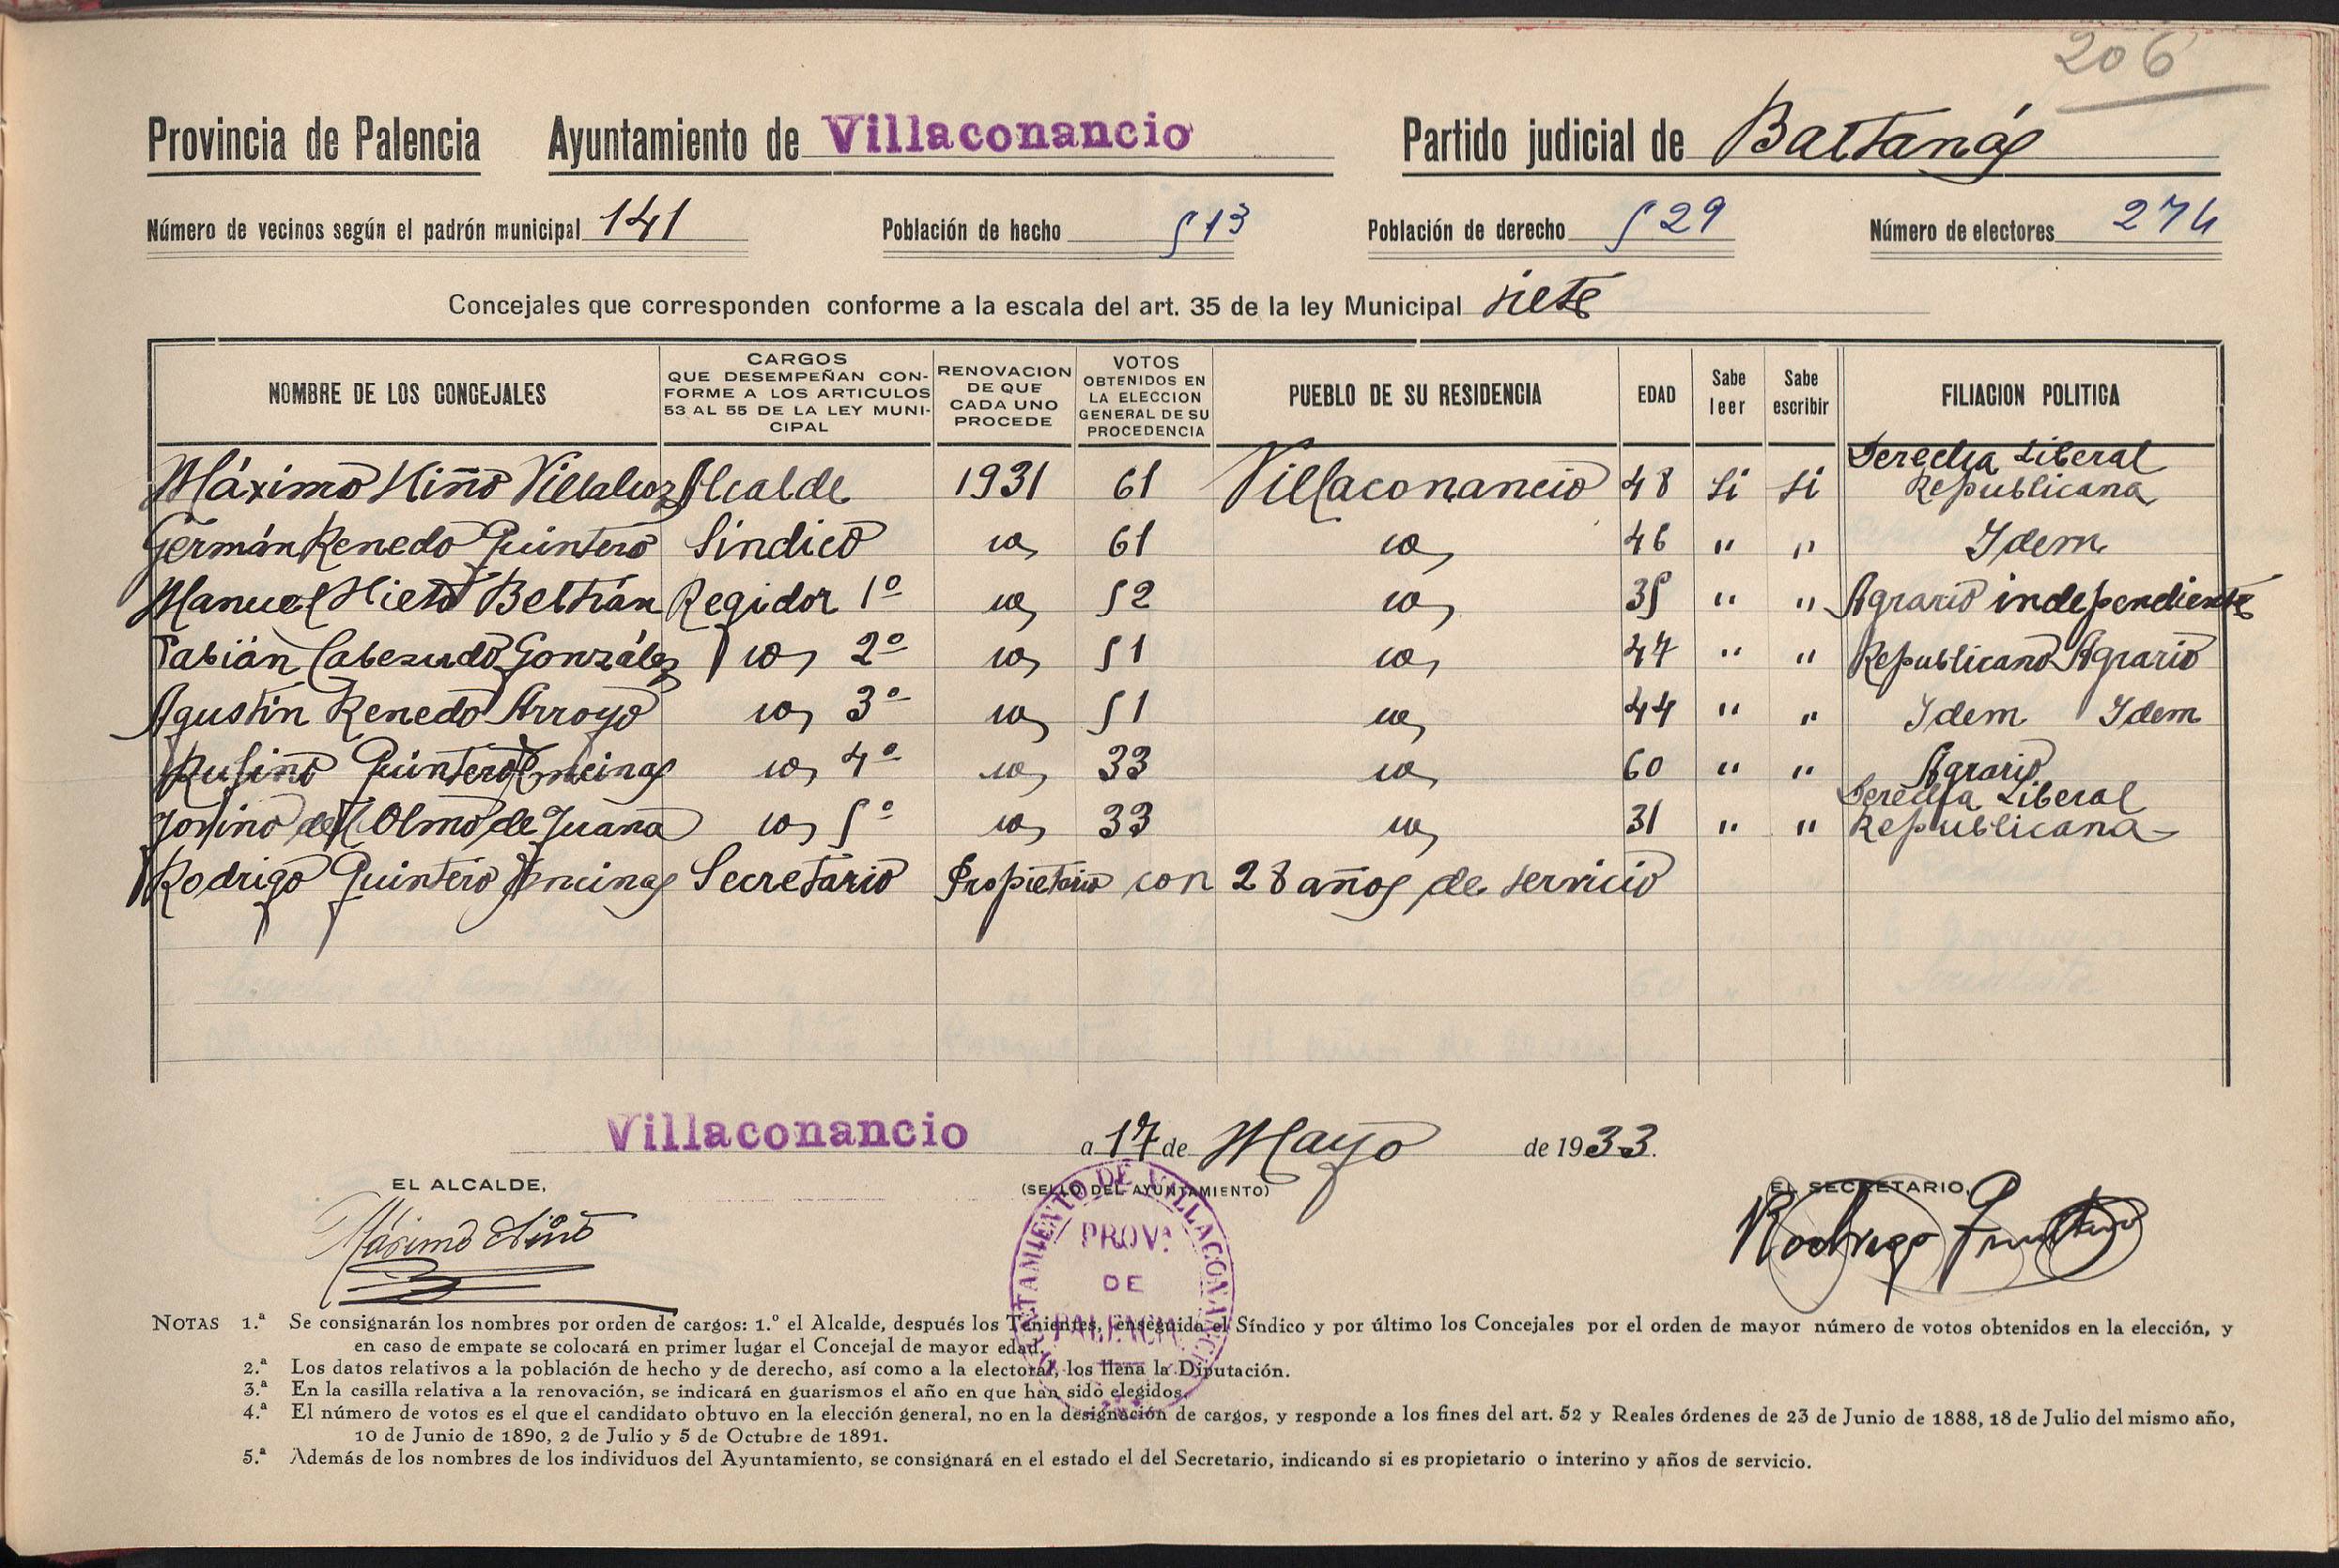 206
Provincia de Palencia Ayuntamiento de Villaconancio Partido judicial de Baltanás
Número de vecinos según el padrón municipal 141 Población de hecho 513 Población de derecho 529 Número de electores 274
Concejales que corresponden conforme a la escala del art. 35 de la ley Municipal siete
NOMBRE DE LOS CONCEJALES CARGOS QUE DESEMPEÑAN CONFORME A LOS ARTICULOS 53 AL 55 DE LA LEY MUNICIPAL RENOVACION DE QUE CADA UNO PROCEDE VOTOS OBTENIDOS EN LA ELECCION GENERAL DE SU PROCEDENCIA PUEBLO DE SU RESIDENCIA EDAD Sabe leer Sabe escribir FILIACION POLITICA
Máximo Niño Villaluz Alcalde 1931 61 Villaconancio 48 si si Derecha Liberal Republicana
Germán Renedo Quintero Síndico id 61 id 46 " " Idem
Manuel Nieto Beltrán Regidor 1º id 52 id 35 " " Agrario independiente
Fabián Cabezudo González id 2º id 51 id 47 " " Republicano Agrario
Agustín Renedo Arroyo id 3º id 51 id 44 " " Idem Idem
Rufino Quintero Encinas id 4º id 33 id 60 " " Agrario
Jovino del Olmo de Juana id 5º id 33 id 31 " " Derecha Liberal Republicana
Rodrigo Quintero Encinas Secretario Propietario con 28 años de servicio
Villaconancio a 17 de Mayo de 1933.
EL ALCALDE, (SELLO DEL AYUNTAMIENTO) EL SECRETARIO,
Máximo Niño Rodrigo Quintero
AYUNTAMIENTO DE VILLACONANCIO
PROVª
DE
PALENCIA
NOTAS 1.ª Se consignarán los nombres por orden de cargos: 1.º el Alcalde, después los Tenientes, enseguida el Síndico y por último los Concejales por el orden de mayor número de votos obtenidos en la elección, y
en caso de empate se colocará en primer lugar el Concejal de mayor edad.
2.ª Los datos relativos a la población de hecho y de derecho, así como a la electoral, los llena la Diputación.
3.ª En la casilla relativa a la renovación, se indicará en guarismos el año en que han sido elegidos.
4.ª El número de votos es el que el candidato obtuvo en la elección general, no en la designación de cargos, y responde a los fines del art. 52 y Reales órdenes de 23 de Junio de 1888, 18 de Julio del mismo año,
10 de Junio de 1890, 2 de Julio y 5 de Octubre de 1891.
5.ª Además de los nombres de los individuos del Ayuntamiento, se consignará en el estado el del Secretario, indicando si es propietario o interino y años de servicio.